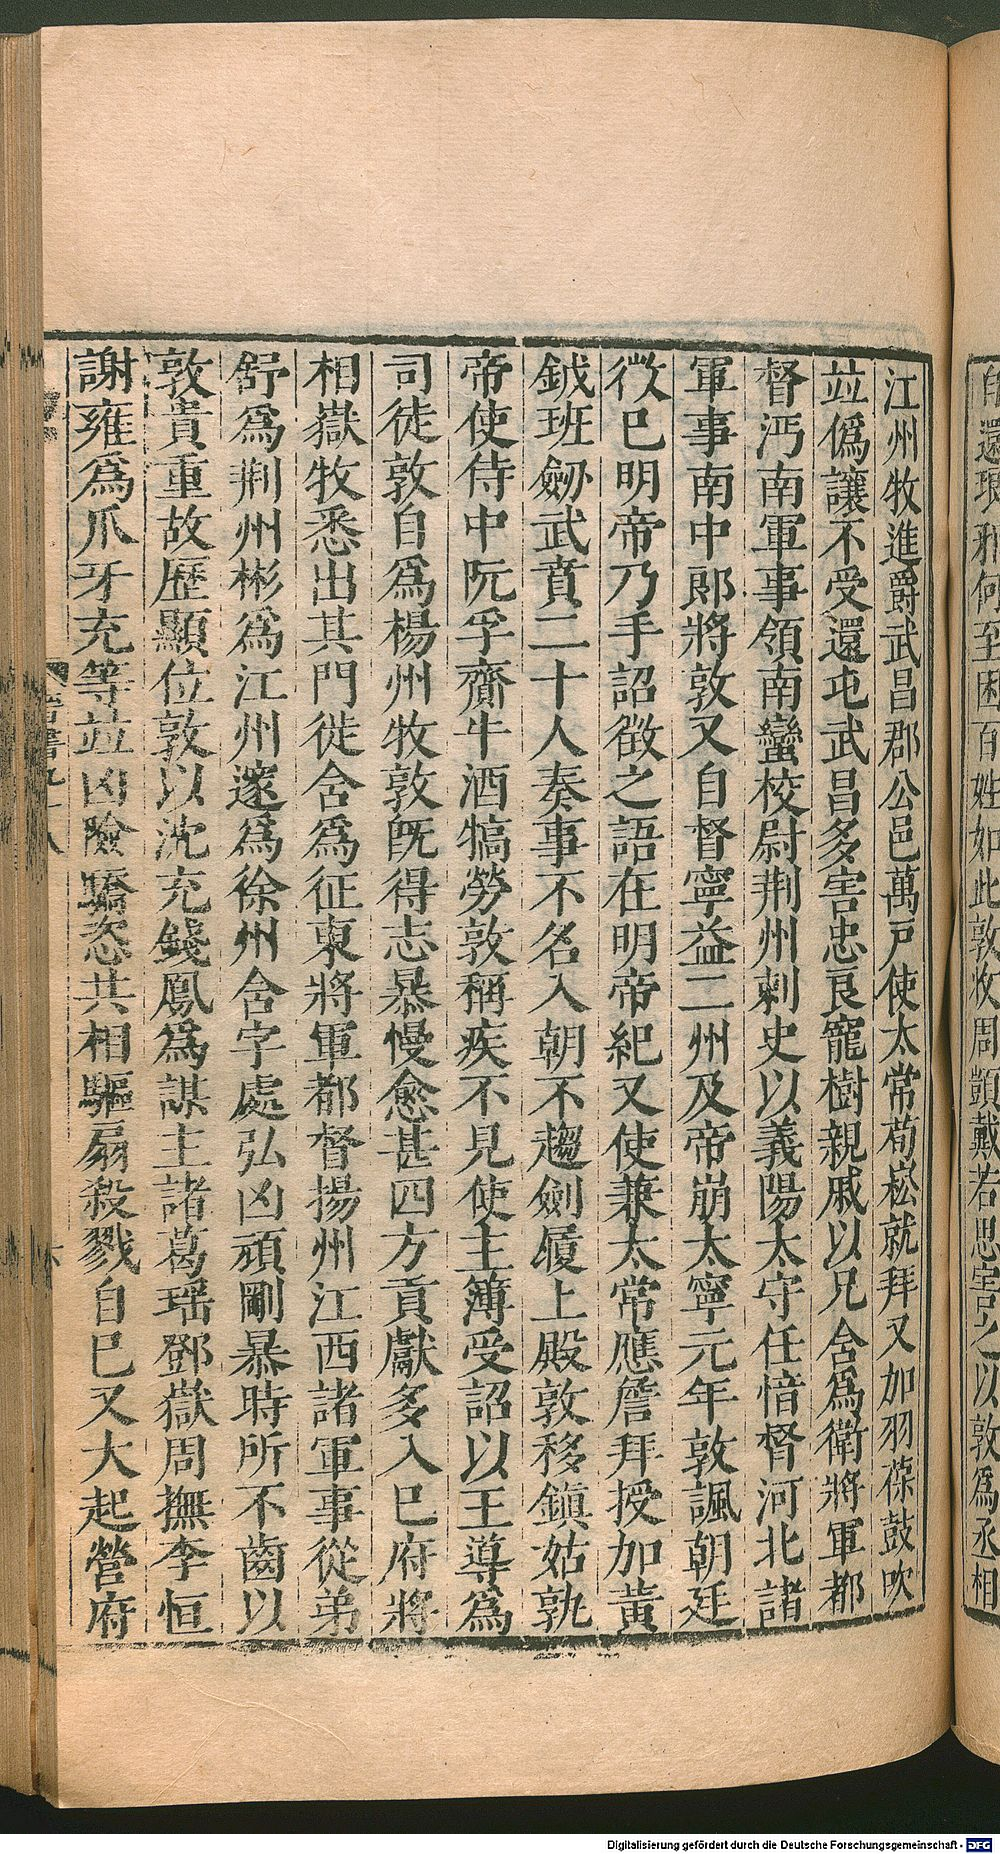 還琅邪何至困百姓如此敦收周顗戴若思害之以敦爲丞相
江州牧進爵武昌郡公邑萬戸使太常荀崧就拜又加羽葆鼓吹
竝僞讓不受還屯武昌多害忠良寵樹親戚以兄含爲衛將軍都
督沔南軍事領南蠻校尉荆州刺史以義陽太守任愔督河北諸
軍事南中郎將敦又自督寧益二州及帝崩太寧元年敦諷朝廷
徵已明帝乃手詔徵之語在明帝紀又使兼太常應詹拜授加黃
鉞班劒武賁二十人奏事不名入朝不趨劍履上殿敦移鎮姑孰
帝使侍中阮孚齎牛酒犒勞敦稱疾不見使主簿受詔以王導爲
司徒敦自爲楊州牧敦旣得志暴慢愈甚四方貢獻多入已府將
相嶽牧悉出其門徙含爲征東將軍都督揚州江西諸軍事從弟
舒爲荆州彬爲江州邃爲徐州含字處弘凶頑剛暴時所不齒以
敦貴重故歷顯位敦以沈充錢鳳爲謀主諸葛瑶鄧嶽周撫李恒
謝雍爲爪牙充等竝凶險驕恣共相驅扇殺戮自已又大起營府
Digitalisierung gefördert durch die Deutsche Forschungsgemeinschaft - DFG